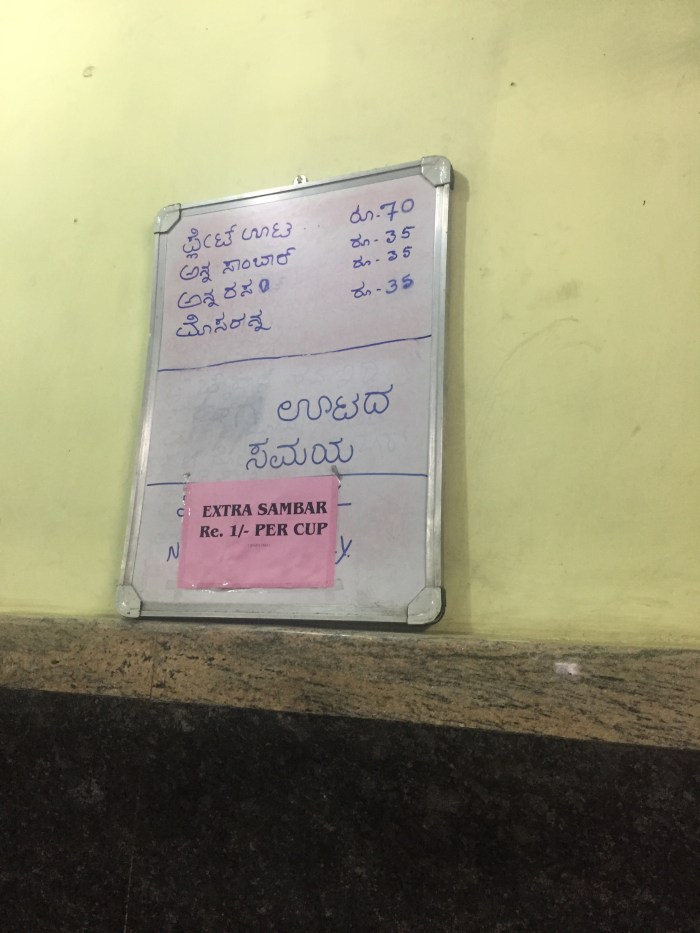 ಪ್ಲೇಟ್ ಊಟ ರೂ.70
ಅನ್ನ ಸಾಂಬಾರ್ ರೂ.35
ಅನ್ನ ರಸಂ ರೂ.35
ಮೊಸರನ್ನ ರೂ.35
ಊಟದ
ಸಮಯ
EXTRA SAMBAR
Re. 1/- PER CUP